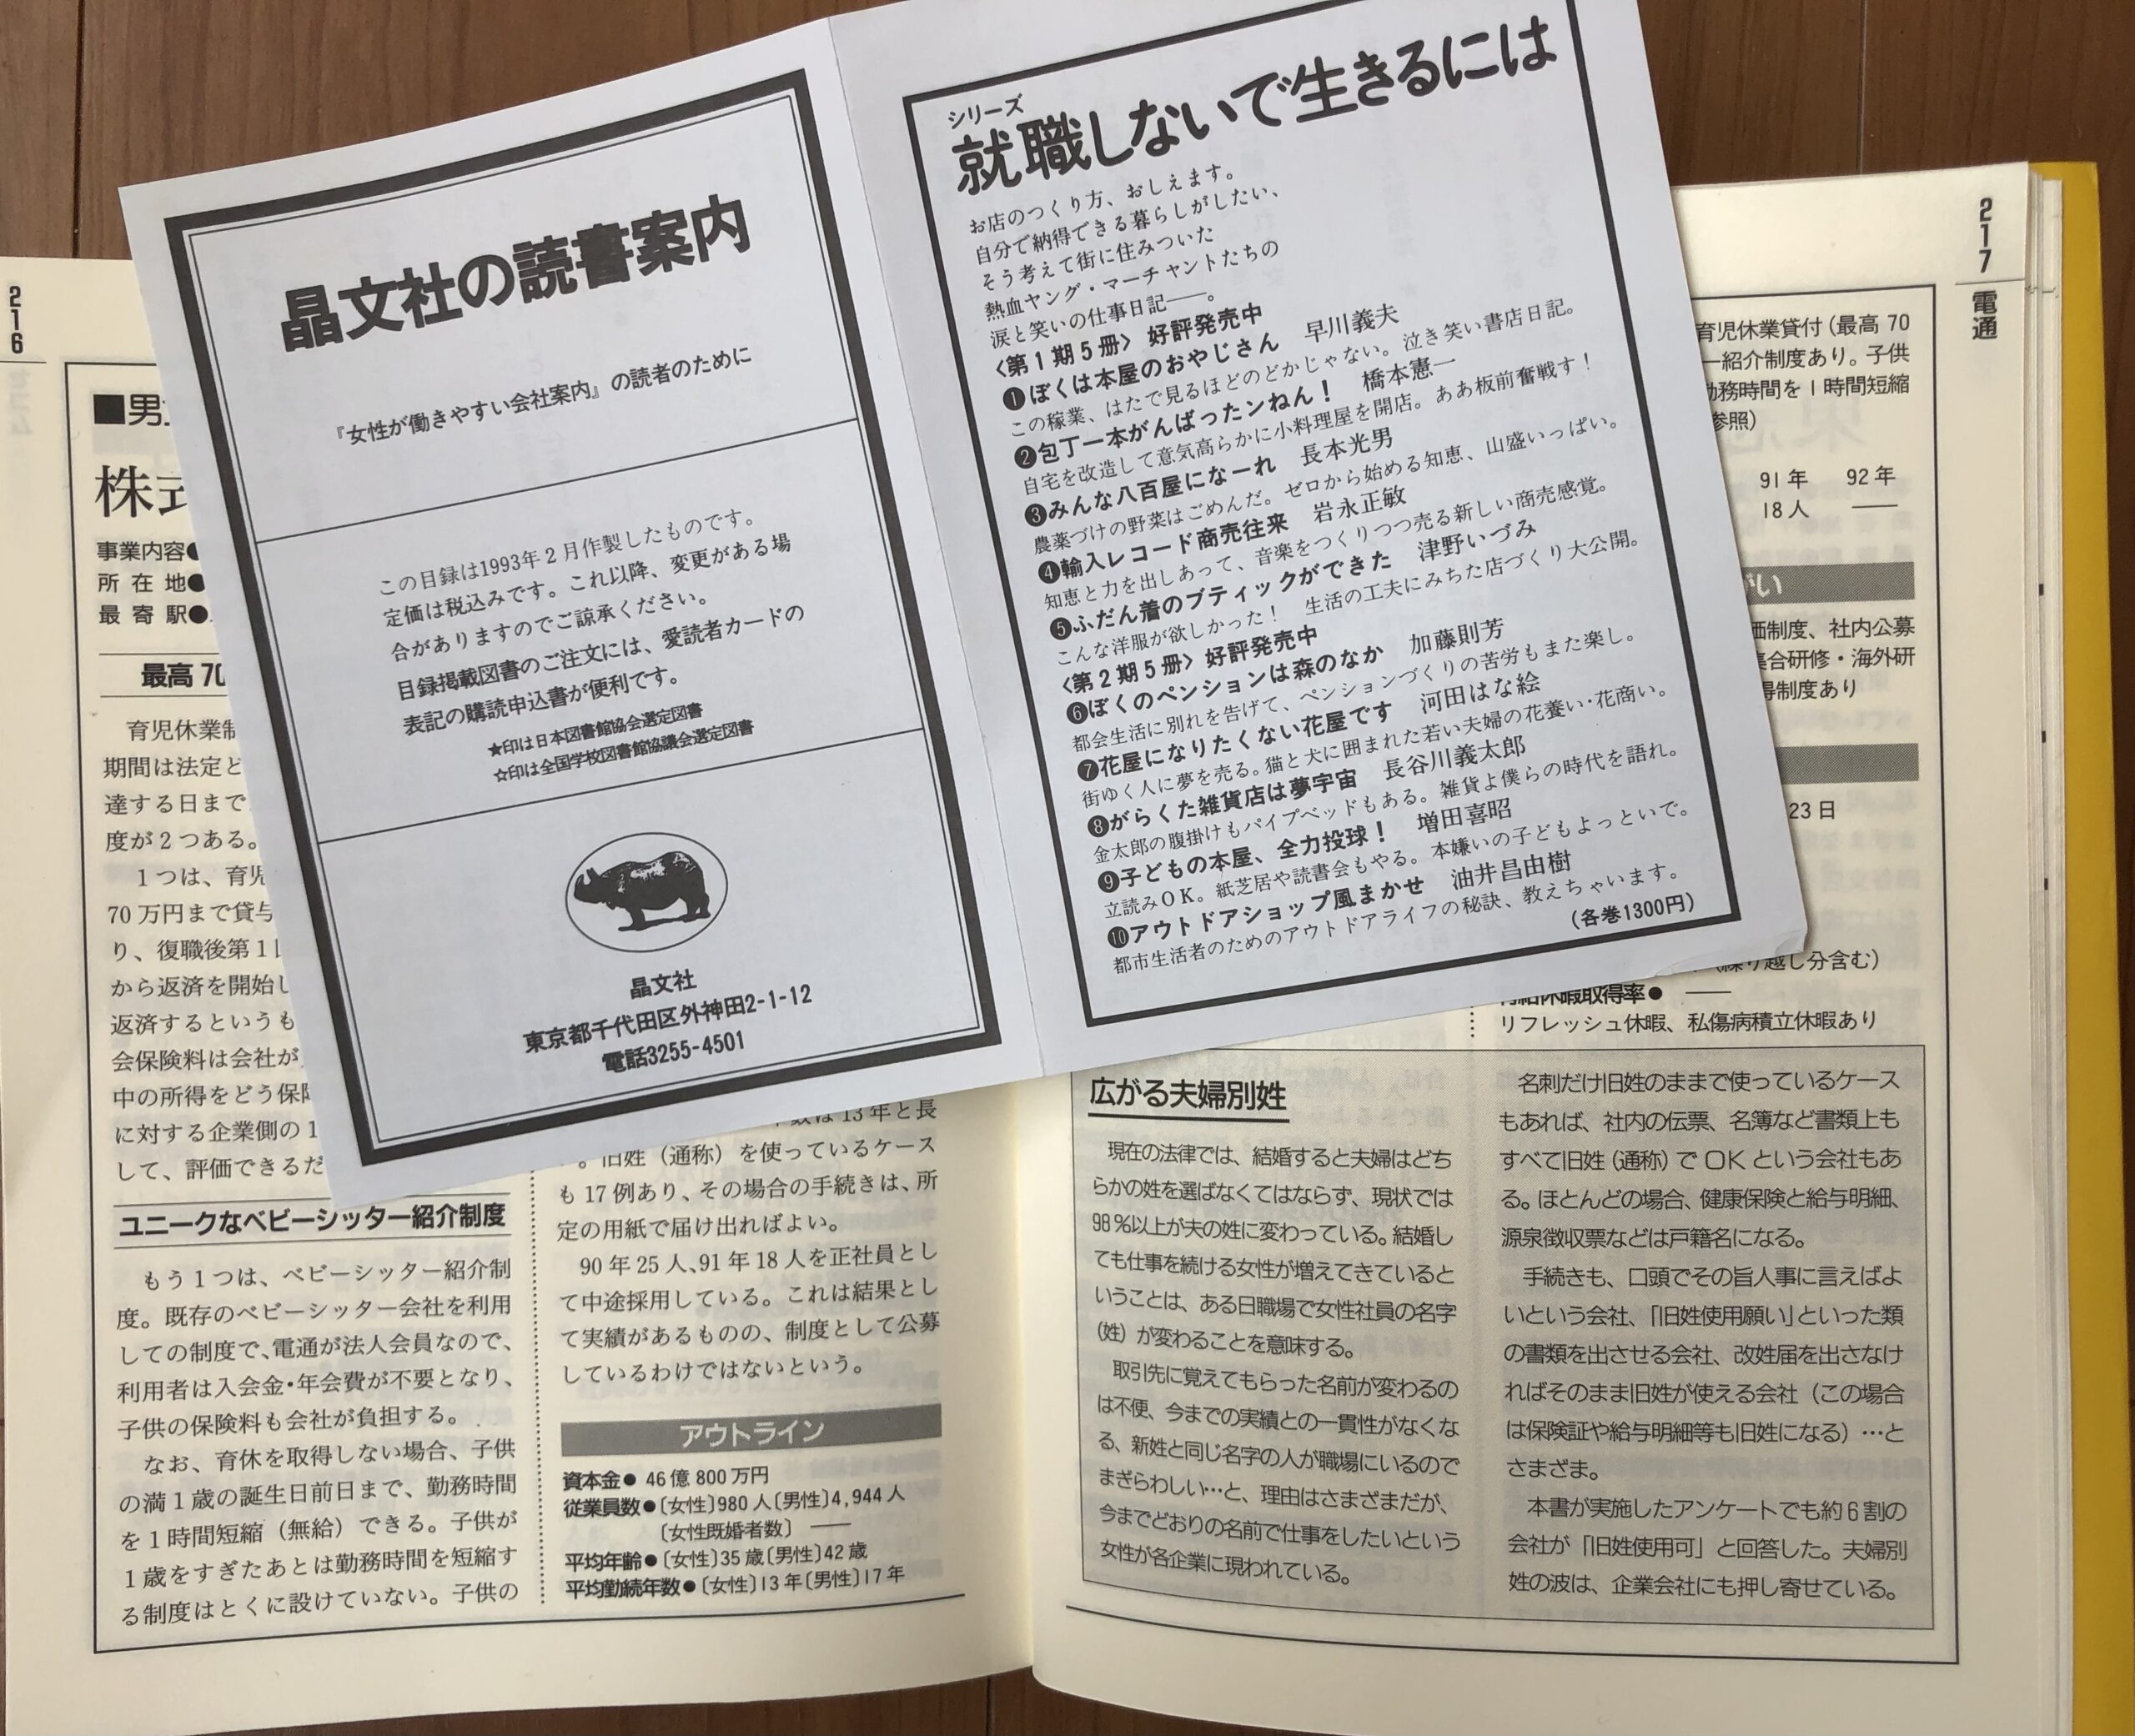 晶文社の読書案内
『女性が働きやすい会社案内』の読者のために
この目録は1993年2月作製したものです。
定価は税込みです。これ以降、変更がある場
合がありますのでご諒承ください。
目録掲載図書のご注文には、愛読者カードの
表記の購読申込書が便利です。
★印は日本図書館協会選定図書
☆印は全国学校図書館協議会選定図書
晶文社
東京都千代田区外神田2-1-12
電話3255-4501
シリーズ
就職しないで生きるには
お店のつくり方、おしえます。
自分で納得できる暮らしがしたい、
そう考えて街に住みついた
熱血ヤング・マーチャントたちの
涙と笑いの仕事日記──。
〈第1期5冊〉好評発売中
❶ぼくは本屋のおやじさん 早川義夫
この稼業、はたで見るほどのどかじゃない。泣き笑い書店日記。
❷包丁一本がんばったンねん! 橋本憲一
自宅を改造して意気高らかに小料理屋を開店。ああ板前奮戦す!
❸みんな八百屋になーれ 長本光男
農薬づけの野菜はごめんだ。ゼロから始める知恵、山盛いっぱい。
❹輸入レコード商売往来 岩永正敏
知恵と力を出しあって、音楽をつくりつつ売る新しい商売感覚。
❺ふだん着のブティックができた 津野いづみ
こんな洋服が欲しかった! 生活の工夫にみちた店づくり大公開。
〈第2期5冊〉好評発売中
❻ぼくのペンションは森のなか 加藤則芳
都会生活に別れを告げて、ペンションづくりの苦労もまた楽し。
❼花屋になりたくない花屋です 河田はな絵
街ゆく人に夢を売る。猫と犬に囲まれた若い夫婦の花養い・花商い。
❽がらくた雑貨店は夢宇宙 長谷川義太郎
金太郎の腹掛けもパイプベッドもある。雑貨よ僕らの時代を語れ。
❾子どもの本屋、全力投球! 増田喜昭
立読みOK。紙芝居や読書会もやる。本嫌いの子どもよっといで。
❿アウトドアショップ風まかせ 油井昌由樹
都市生活者のためのアウトドアライフの秘訣、教えちゃいます。
(各巻1300円)
216
■男
株式
事業内容●
所在地●
最寄駅●
最高70
育児休業制
期間は法定ど
達する日まで
度が2つある。
1つは、育児
70万円まで貸与
り、復職後第1
から返済を開始し
返済するというも
会保険料は会社が
中の所得をどう保障
に対する企業側の1
して、評価できるだ
ユニークなベビーシッター紹介制度
もう1つは、ベビーシッター紹介制
度。既存のベビーシッター会社を利用
しての制度で、電通が法人会員なので、
利用者は入会金・年会費が不要となり、
子供の保険料も会社が負担する。
なお、育休を取得しない場合、子供
の満1歳の誕生日前日まで、勤務時間
を1時間短縮(無給)できる。子供が
1歳をすぎたあとは勤務時間を短縮す
る制度はとくに設けていない。子供の
数は13年と長
。旧姓(通称)を使っているケース
も17例あり、その場合の手続きは、所
定の用紙で届け出ればよい。
90年25人、91年18人を正社員とし
て中途採用している。これは結果とし
て実績があるものの、制度として公募
しているわけではないという。
アウトライン
資本金● 46億800万円
従業員数●〔女性〕980人〔男性〕4,944人
〔女性既婚者数〕 ──
平均年齢●〔女性〕35歳〔男性〕42歳
平均勤続年数●〔女性〕13年〔男性〕17年
217
電通
育児休業貸付(最高70
ー紹介制度あり。子供
勤務時間を1時間短縮
参照)
91年 92年
18人 ──
がい
価制度、社内公募
集合研修・海外研
得制度あり
23日
(繰り越し分含む)
有給休暇取得率● ──
リフレッシュ休暇、私傷病積立休暇あり
広がる夫婦別姓
現在の法律では、結婚すると夫婦はどち
らかの姓を選ばなくてはならず、現状では
98%以上が夫の姓に変わっている。結婚し
ても仕事を続ける女性が増えてきていると
いうことは、ある日職場で女性社員の名字
(姓)が変わることを意味する。
取引先に覚えてもらった名前が変わるの
は不便、今までの実績との一貫性がなくな
る、新姓と同じ名字の人が職場にいるので
まぎらわしい…と、理由はさまざまだが、
今までどおりの名前で仕事をしたいという
女性が各企業に現われている。
名刺だけ旧姓のままで使っているケース
もあれば、社内の伝票、名簿など書類上も
すべて旧姓(通称)でOKという会社もあ
る。ほとんどの場合、健康保険と給与明細、
源泉徴収票などは戸籍名になる。
手続きも、口頭でその旨人事に言えばよ
いという会社、「旧姓使用願い」といった類
の書類を出させる会社、改姓届を出さなけ
ればそのまま旧姓が使える会社(この場合
は保険証や給与明細等も旧姓になる)…と
さまざま。
本書が実施したアンケートでも約6割の
会社が「旧姓使用可」と回答した。夫婦別
姓の波は、企業会社にも押し寄せている。